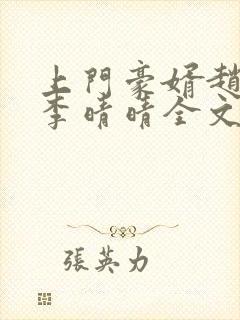 上門豪婿趙
李晴晴全文
張英力